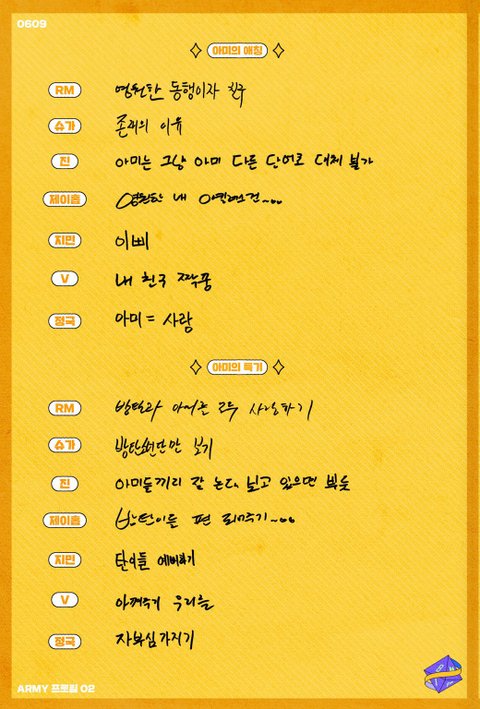 0609
아미의 애칭
RM 영원한 동행이자 친구
슈가 존재의 이유
진 아미는 그냥 아미 다른 단어로 대체 불가
제이홉 영원한 내
지민 이삐
V 내 친구 짝꿍
정국 아미 = 사랑
아미의 특기
RM 방탄과 아미를 모두 사랑하기
슈가 방탄소년단만 보기
진 아미들끼리 잘 논다. 보고 있으면 뿌듯
제이홉 방탄이들 편 되어주기~..
지민 탄이들 예뻐하기
V 아껴주기 우리를
정국 자부심 가지기
ARMY 프로필 02